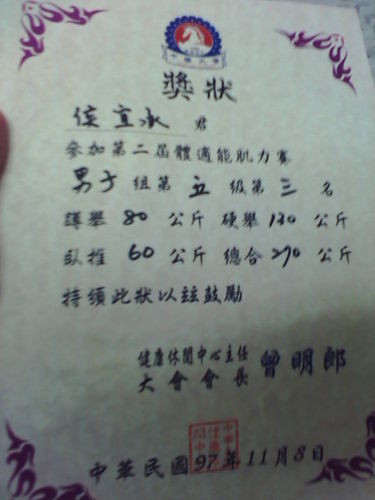 中華大學
獎狀
侯宜永 君
參加第二屆體適能肌力賽
男子 組第 五 級第 三 名
蹲舉 80 公斤 硬舉 130 公斤
臥推 60 公斤 總合 270 公斤
特頒此狀以玆鼓勵
健康休閒中心主任
大會會長 曾明郎
中華民國97年11月8日